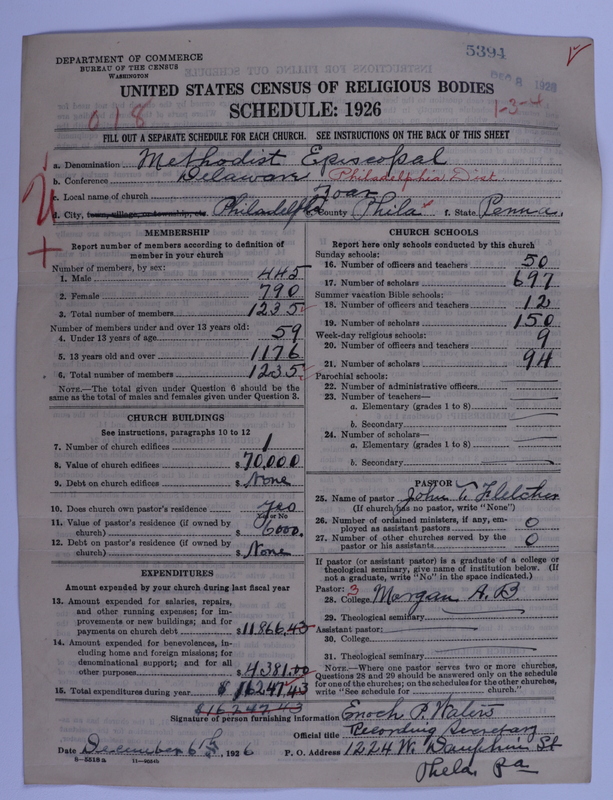 5394
DEPARTMENT OF COMMERCE
BUREAU OF THE CENSUS
WASHINGTON
DEC 8 1926
UNITED STATES CENSUS OF RELIGIOUS BODIES
SCHEDULE: 1926
018
1-3-4
FILL OUT A SEPARATE SCHEDULE FOR EACH CHURCH. SEE INSTRUCTIONS ON THE BACK OF THIS SHEET
a. Denomination Methodist Episcopal
b. Conference Delaware Philadelphia Dist
c. Local name of church Zoar
d. City, town, village, or township, etc. Philadelphia County Phila f. State Penna
MEMBERSHIP
Report number of members according to definition of
member in your church
Number of members, by sex:
1. Male 445
2. Female 790
3. Total number of members 1235
Number of members under and over 13 years old:
4. Under 13 years of age 59
5. 13 years old and over 1176
6. Total number of members 1235
NOTE.—The total given under Question 6 should be the
same as the total of males and females given under Question 3.
CHURCH BUILDINGS
See instructions, paragraphs 10 to 12
7. Number of church edifices 1
8. Value of church edifices $ 70,000
9. Debt on church edifices $ None
10. Does church own pastor's residence Yes
Yes or No
11. Value of pastor's residence (if owned by
church) $ 6000.
12. Debt on pastor's residence (if owned by
church) $ None
EXPENDITURES
Amount expended by your church during last fiscal year
13. Amount expended for salaries, repairs,
and other running expenses; for im-
provements or new buildings; and for
payments on church debt $ 11866.43
14. Amount expended for benevolences, in-
cluding home and foreign missions; for
denominational support; and for all
other purposes $ 4381.00
15. Total expenditures during year $ 16247.43
$16247.43
CHURCH SCHOOLS
Report here only schools conducted by this church
Sunday schools:
16. Number of officers and teachers 50
17. Number of scholars 697
Summer vacation Bible schools:
18. Number of officers and teachers 12
19. Number of scholars 150
Week-day religious schools:
20. Number of officers and teachers 9
21. Number of scholars 94
Parochial schools:
22. Number of administrative officers
23. Number of teachers—
a. Elementary (grades 1 to 8)
b. Secondary
24. Number of scholars—
a. Elementary (grades 1 to 8)
b. Secondary
PASTOR
25. Name of pastor John T. Fletcher
(If church has no pastor, write "None")
26. Number of ordained ministers, if any, em-
ployed as assistant pastors 0
27. Number of other churches served by the
pastor or his assistants 0
If pastor (or assistant pastor) is a graduate of a college or
theological seminary, give name of institution below. (If
not a graduate, write "No" in the space indicated.)
Pastor: 3
28. College Morgan A.B
29. Theological seminary
Assistant pastor:
30. College
31. Theological seminary
NOTE.—Where one pastor serves two or more churches,
Questions 28 and 29 should be answered only on the schedule
for one of the churches; on the schedules for the other churches,
write "See schedule for church."
Signature of person furnishing information Enoch P. Waters
Official title Recording Secretary
Date December 6th, 1926 P. O. Address 1224 W. Dauphin St
8—5518a 11—9054b
Phila Pa